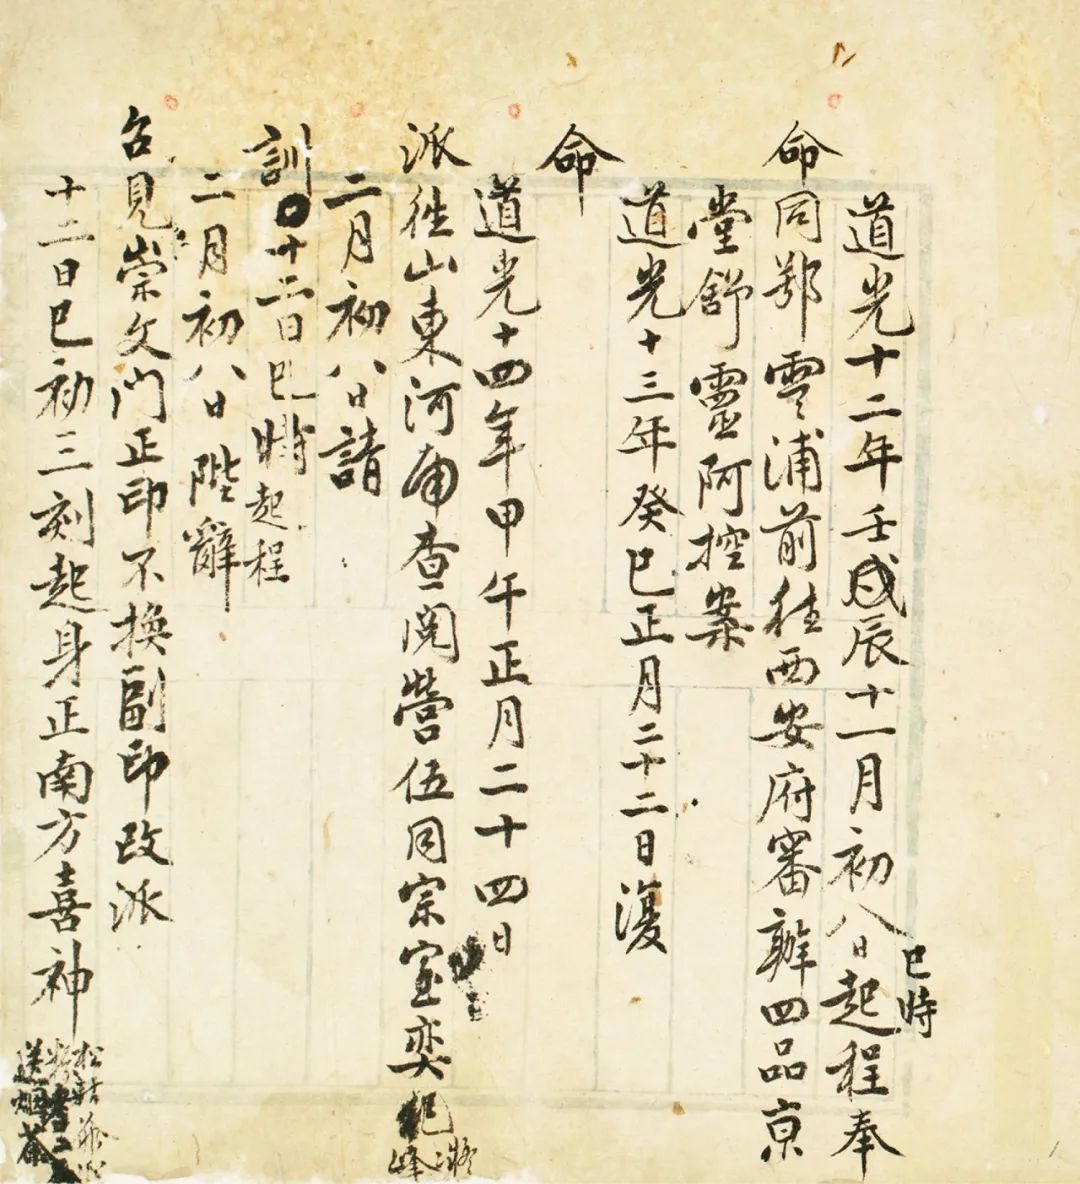 道光十二年壬辰十一月初八日巳時起程奉
命同鄂雩浦前往西安府審辦四品京
堂舒靈阿控案
道光十三年癸巳正月二十二日復
命
道光十四年甲午正月二十四日
派往山東河南查閱營伍同宗室奕
二月初八日請
訓十二日巳時起程
二月初八日陛辭
召見崇文門正印不換副印改派
十二日巳初三刻起身正南方喜神
送
茶